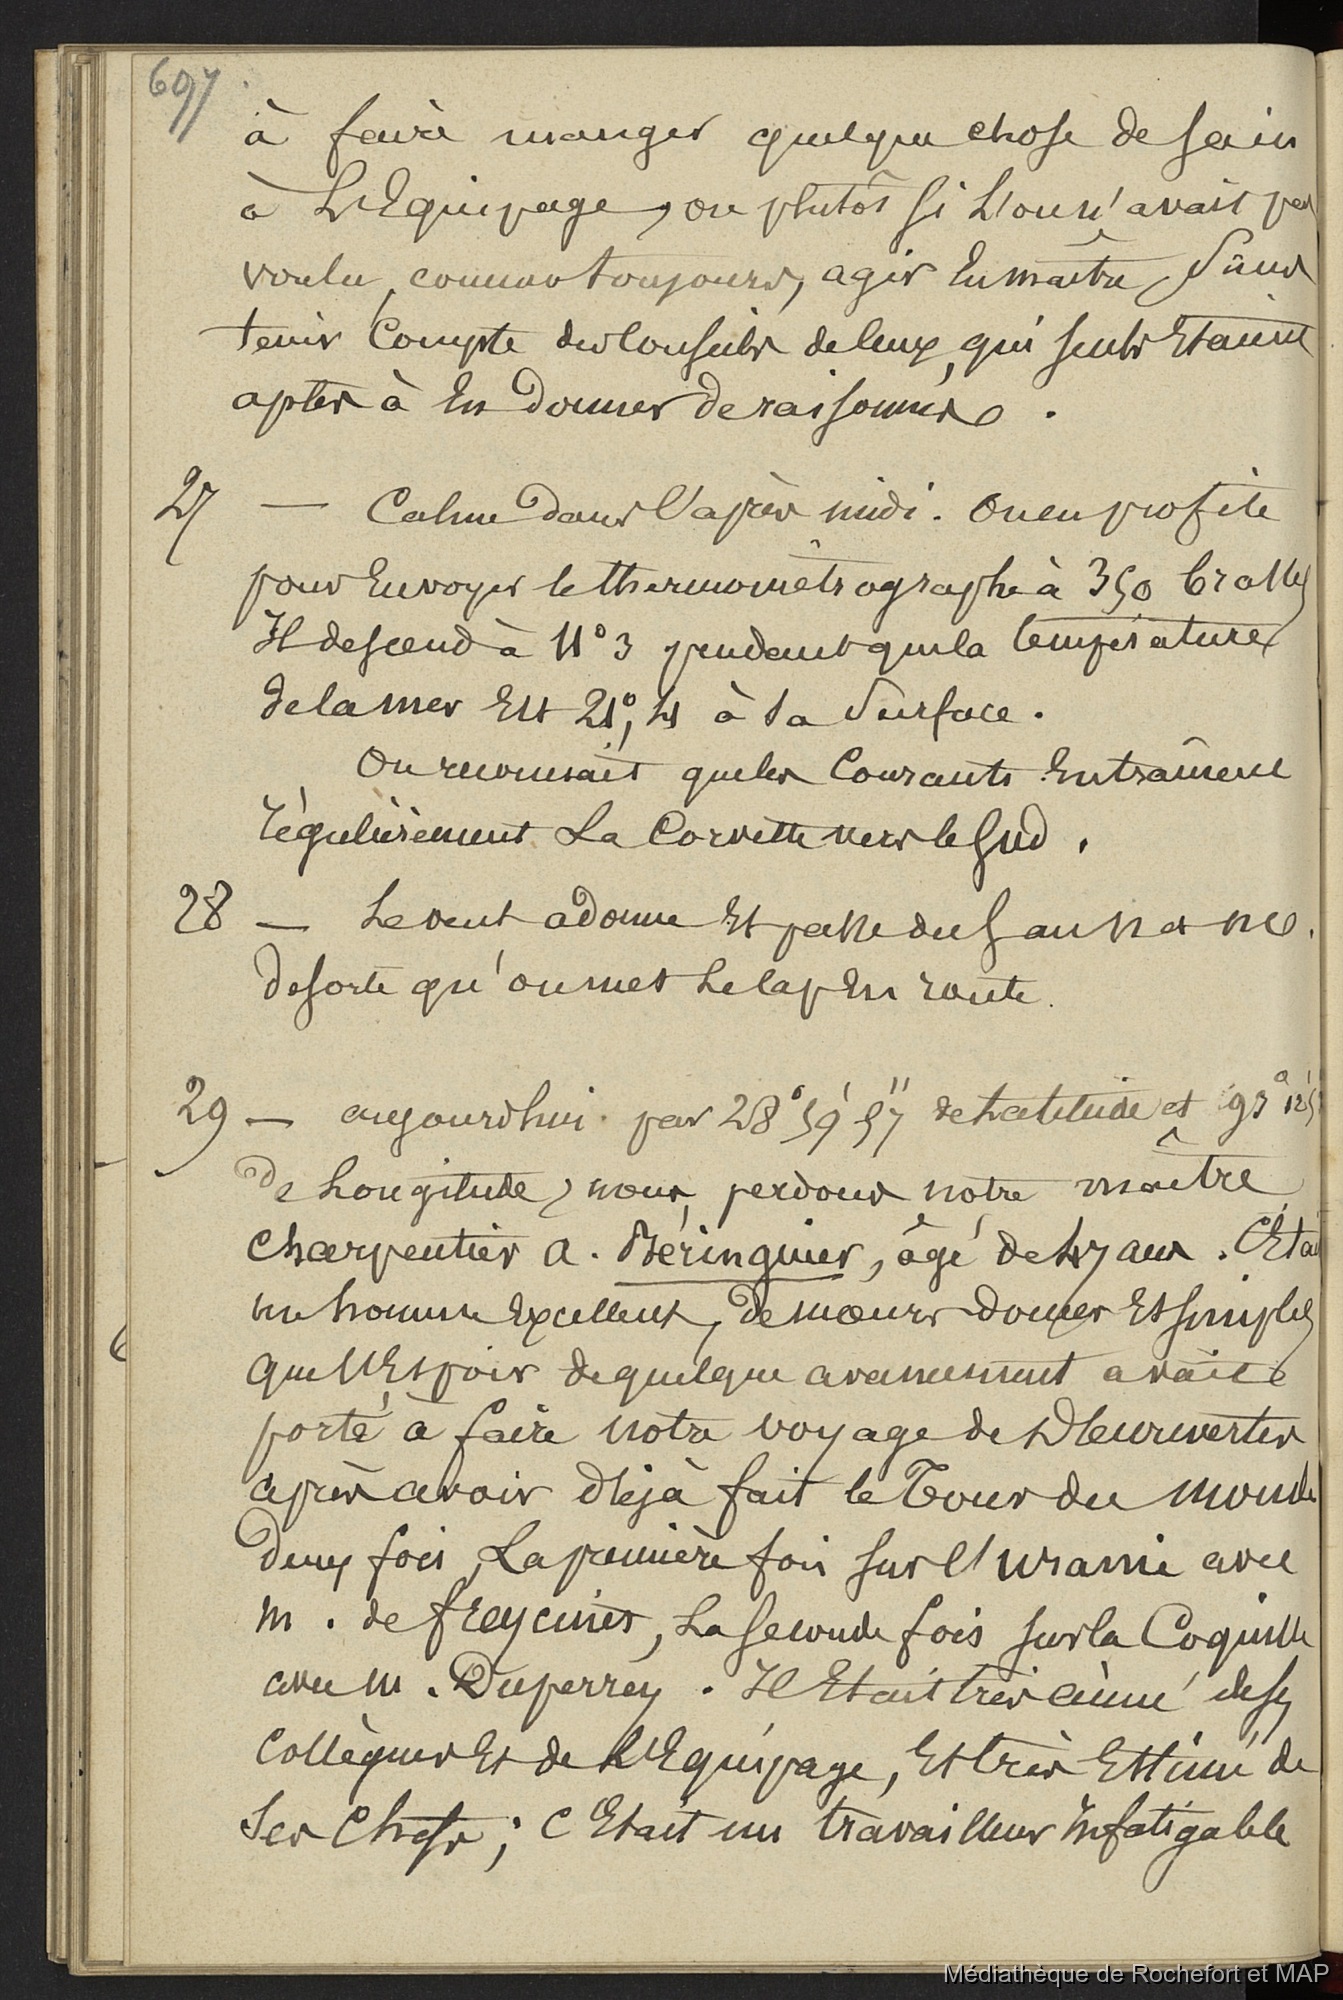 697
à faire manger quelque chose de sain
à L'Equipage, ou plutôt si L'on n'avait pas
voulu, comme toujours, agir En maître, sans
tenir Compte des Conseils de ceux, qui seuls Etaient
aptes à En Donner de raisonnés.
27 — Calme Dans l'après midi. On en profite
pour Envoyer le thermométrographe à 350 brasses
Il descend à 11° 3 pendant que la température
de la mer Est 21°, 4 à la surface.
On reconnait que les Courants Entraînent
régulièrement La Corvette vers le Sud.
28 — Le vent adonne Et passe du S au N et NE.
de sorte qu'on met Le Cap En route.
29 — aujourdhui par 28° 59' 57" de Latitude et 93° 12'
De Longitude, nous perdons notre maître
Charpentier A. Béringuier, âgé de 47 ans. C'Etait
un homme Excellent, De mœurs douces Et simples
que L'Espoir de quelque avancement avait
porté à faire notre voyage de Découvertes
après avoir déjà fait le Tour du monde
Deux fois, La première fois sur l'Uranie avec
M. de Freycinet, La seconde fois sur la Coquille
avec M. Duperrey. Il Etait très aimé de ses
Collègues Et de L'Equipage, Et très Estimé de
ses Chefs; C'Etait un travailleur Infatigable
Médiathèque de Rochefort et MAP